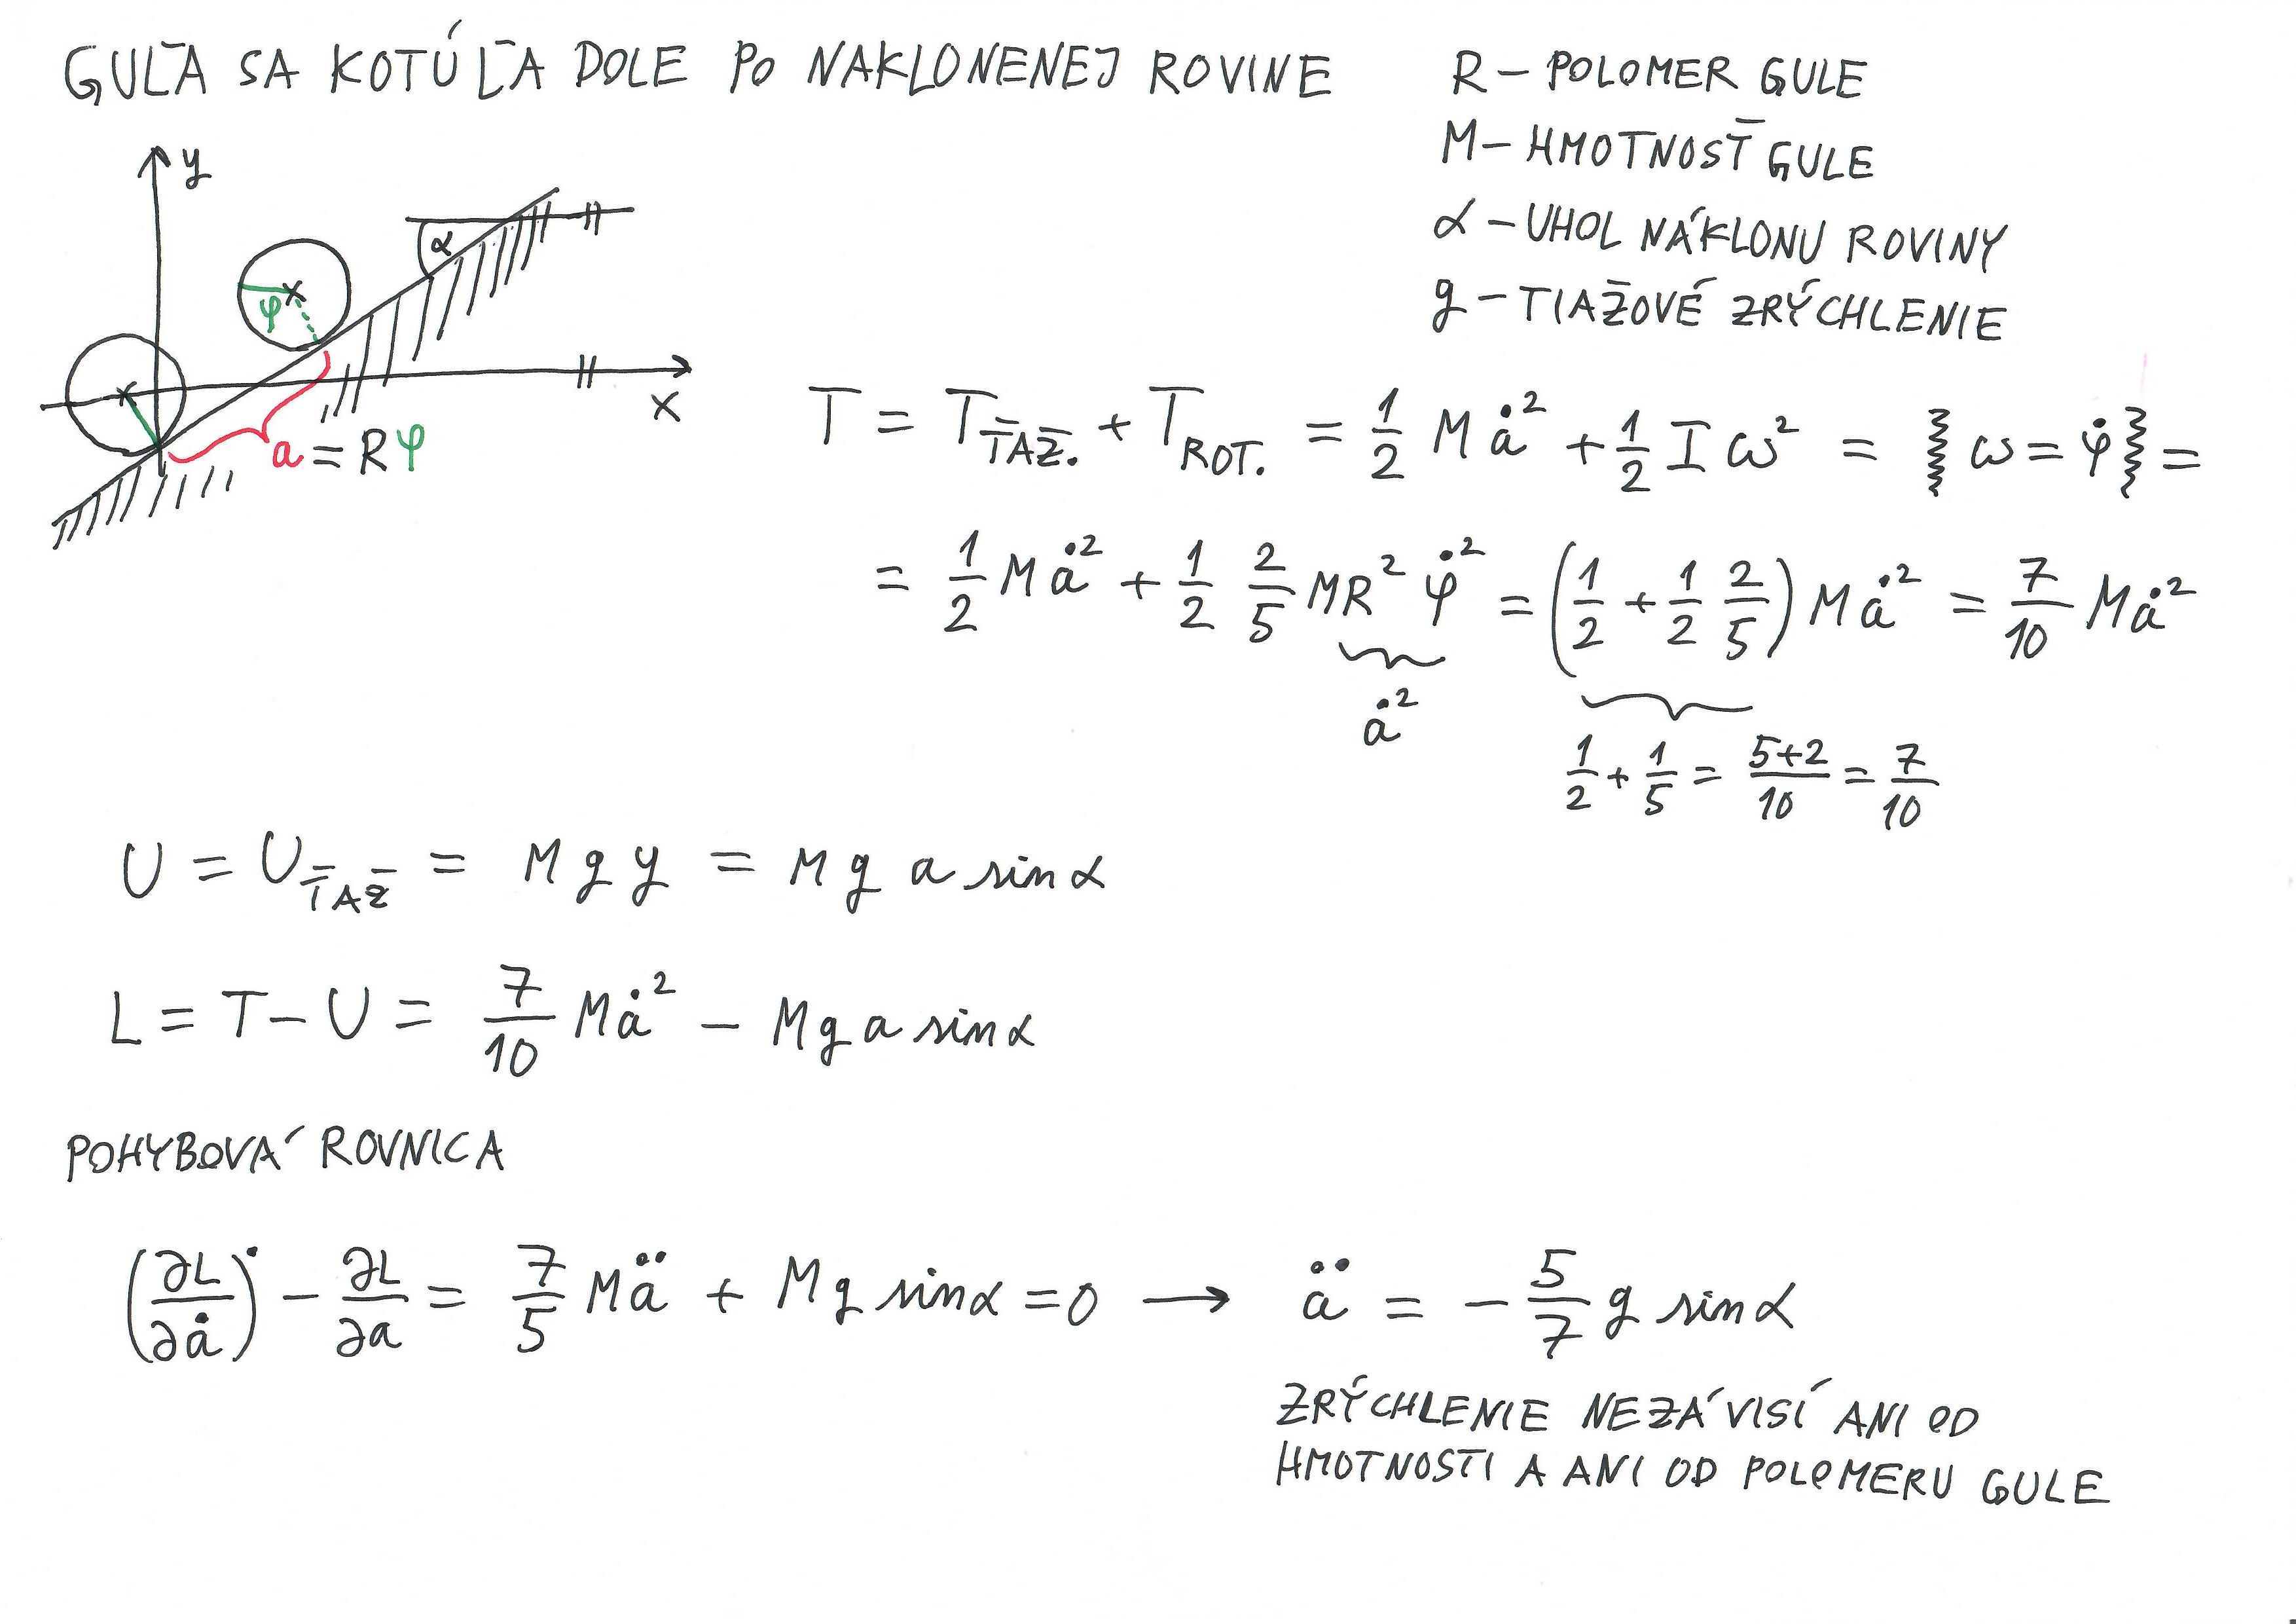 GUĽA SA KOTÚĽA DOLE PO NAKLONENEJ ROVINE
R – POLOMER GULE
M – HMOTNOSŤ GULE
α – UHOL NÁKLONU ROVINY
g – TIAŽOVÉ ZRÝCHLENIE
y
α
φ
x
a = Rφ
T = T_ŤAŽ. + T_ROT. = 1/2 M ȧ² + 1/2 I ω² = { ω = φ̇ } =
= 1/2 M ȧ² + 1/2 2/5 MR² φ̇² = (1/2 + 1/2 2/5) M ȧ² = 7/10 M ȧ²
ȧ²
1/2 + 1/5 = 5+2/10 = 7/10
U = U_ŤAŽ = M g y = M g a sin α
L = T – U = 7/10 M ȧ² – M g a sin α
POHYBOVÁ ROVNICA
(∂L/∂ȧ)˙ – ∂L/∂a = 7/5 M ä + M g sin α = 0 → ä = – 5/7 g sin α
ZRÝCHLENIE NEZÁVISÍ ANI OD
HMOTNOSTI A ANI OD POLOMERU GULE